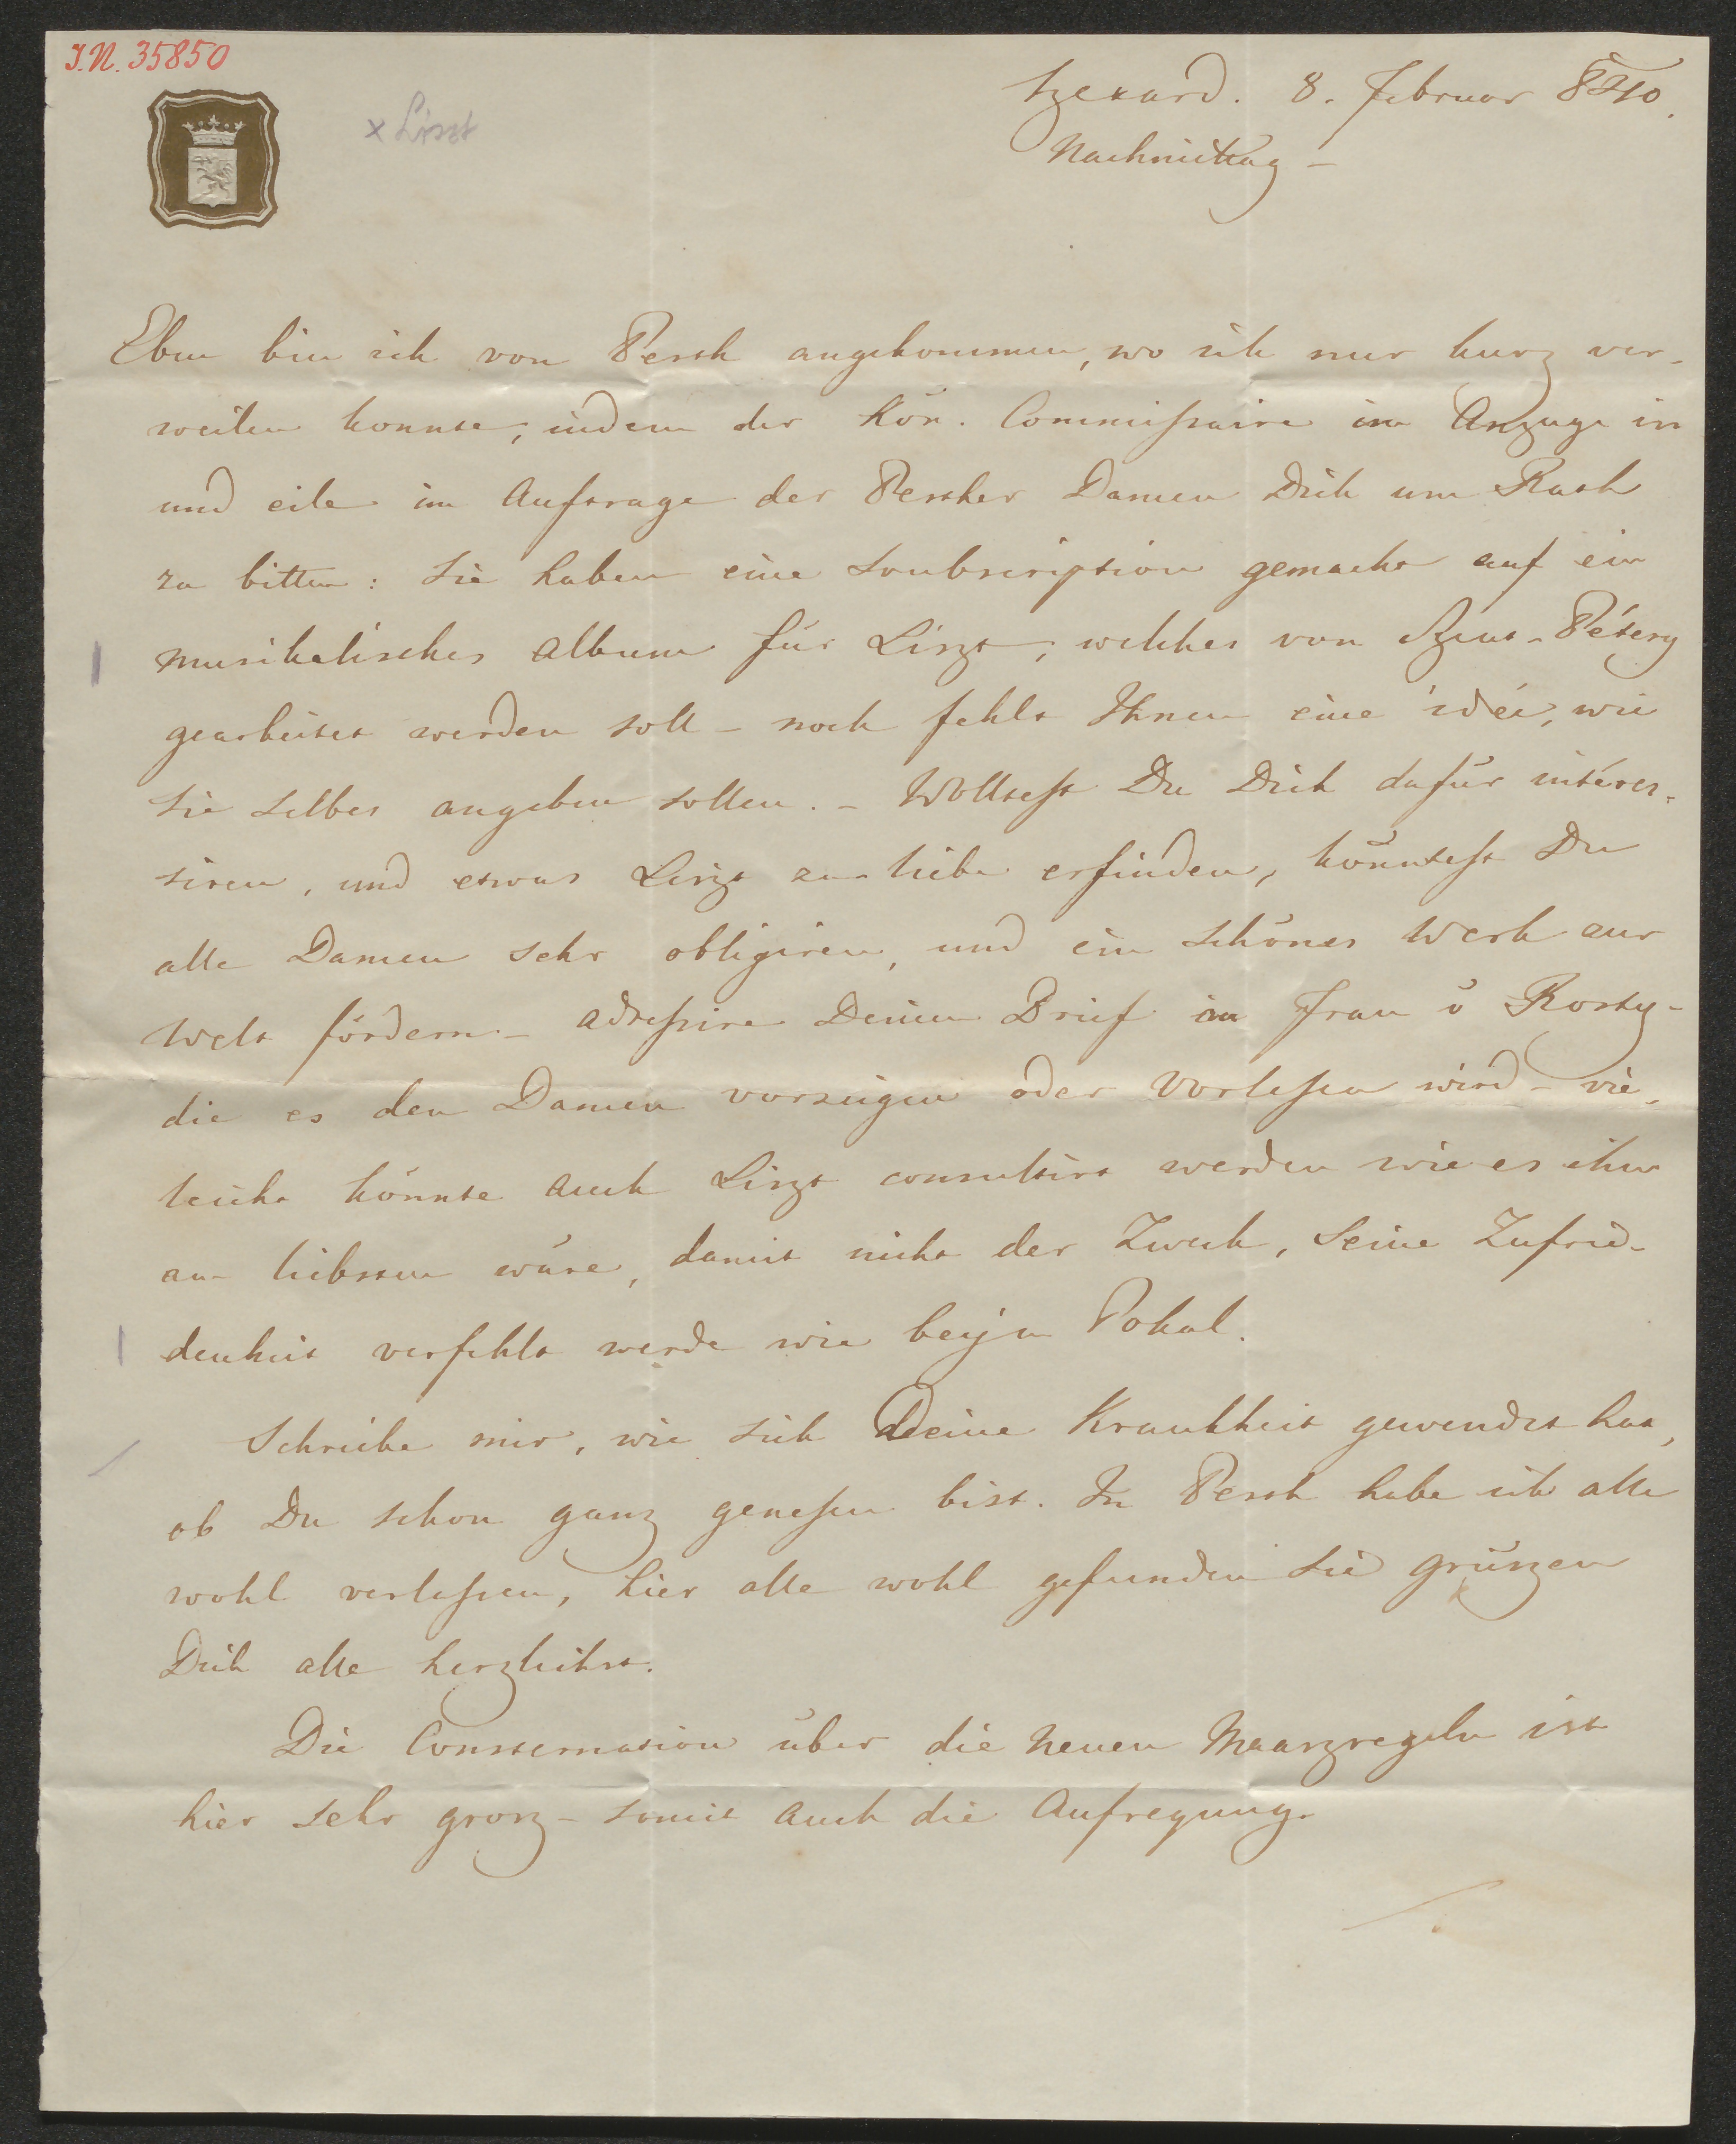 I.N. 35850
x Liszt
Szexard. 8. Februar 840.
Nachmittag –
Eben bin ich von Pesth angekommen, wo ich nur kurz ver-
weilen konnte, indem der Kön. Commissaire im Anzuge is
und eile im Auftrage der Pesther Damen Dich um Rath
zu bitten: Sie haben eine Soubscription gemacht auf ein
musikalisches Album für Liszt, welches von Szent-Pétery
gearbeitet werden soll – noch fehlt Ihnen eine idée, wie
sie selbes angeben sollen. – Wolltest Du Dich dafür intéres-
siren, und etwas Liszt zu liebe erfinden, könntest Du
alle Damen sehr obligiren, und ein schönes Werk zur
Welt fördern – adressire Deinen Brief an Frau v Rosty –
die es den Damen vorzeigen oder vorlesen wird – vie-
leicht könnte auch Liszt consultirt werden wie es ihm
am liebsten wäre, damit nicht der Zweck, seine Zufrie-
denheit verfehlt werde wie beÿm Pokal.
Schreibe mir, wie sich Deine Krankheit gewendet hat,
ob Du schon ganz genesen bist. In Pesth habe ich alle
wohl verlassen, hier alle wohl gefunden sie grüszen
Dich alle herzlichst.
Die Consternation über die neuen Maaszregeln ist
hier sehr grosz – somit auch die Aufregung.